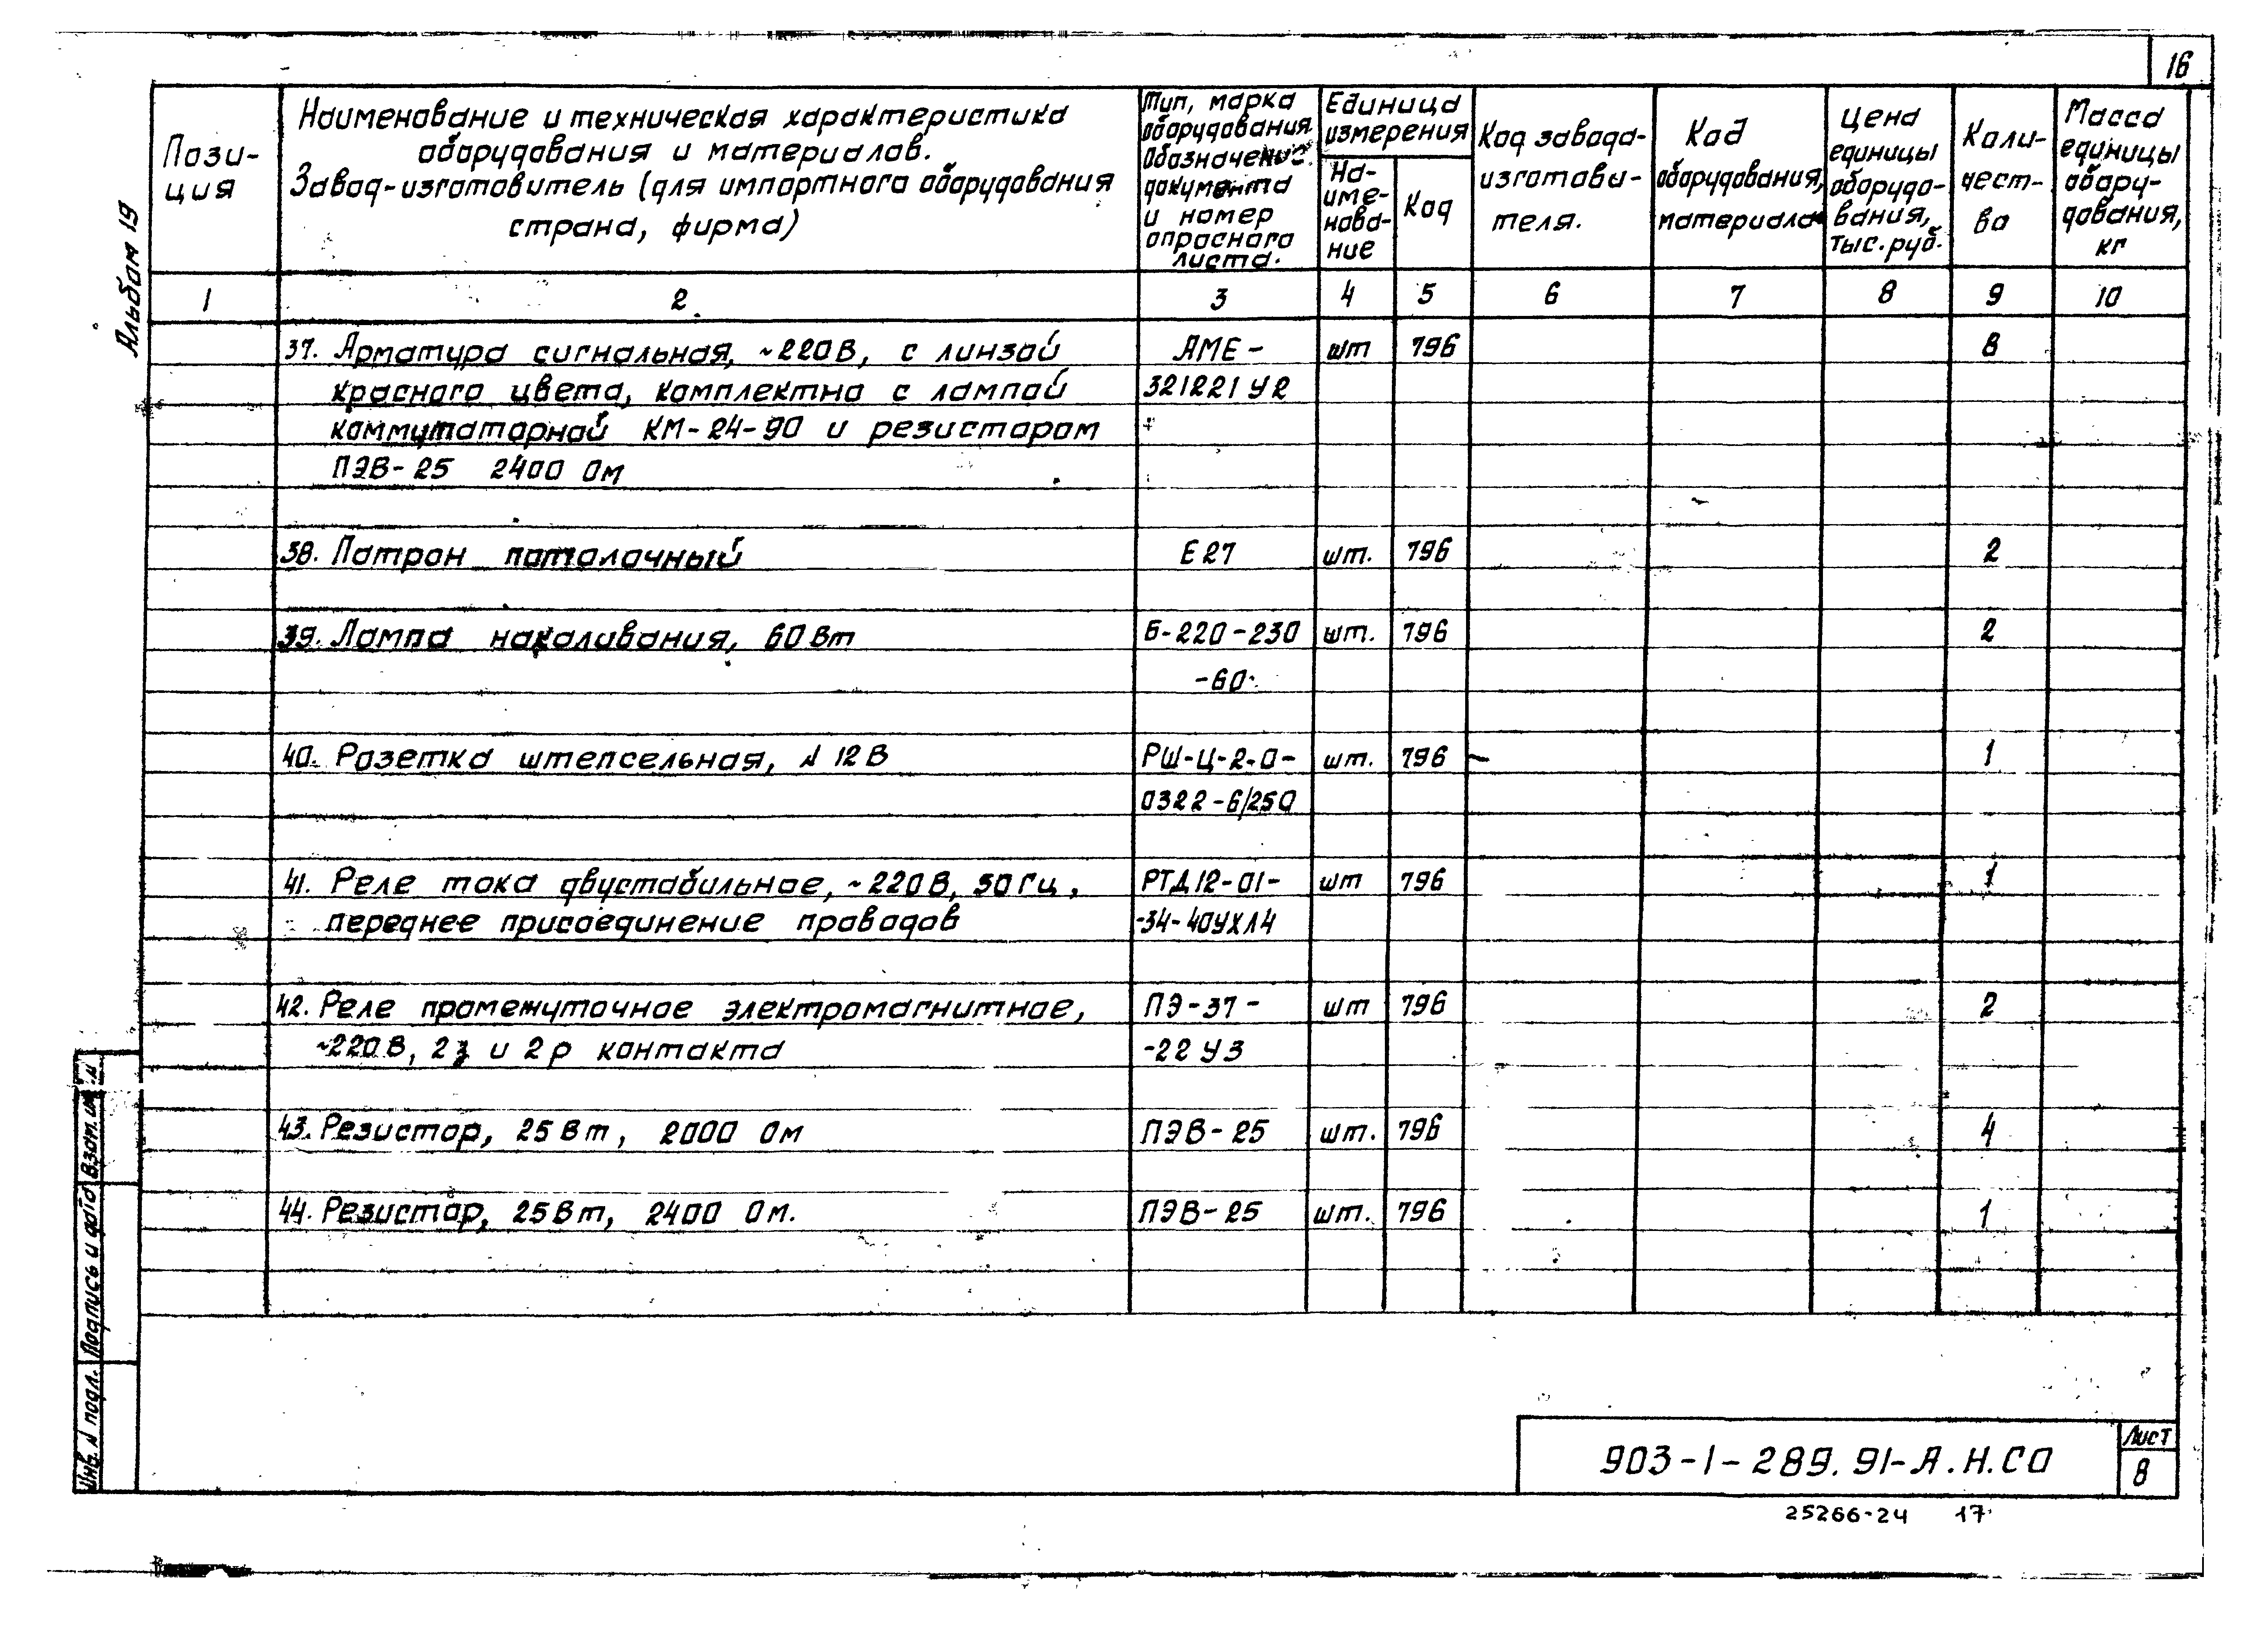 16
Альбом 19
Пози-
ция
Наименование и техническая характеристика
оборудования и материалов.
Завод-изготовитель (для импортного оборудования
страна, фирма)
Тип, марка
оборудования.
Обозначение
документа
и номер
опросного
листа.
Единица
измерения
На-
име-
нова-
ние
Код
Код завода-
изготови-
теля.
Код
оборудования,
материала
Цена
единицы
оборудо-
вания,
тыс. руб.
Коли-
чест-
во
Масса
единицы
обору-
дования,
кг
1 2 3 4 5 6 7 8 9 10
37. Арматура сигнальная, ~220В, с линзой АМЕ- шт 796 8
красного цвета, комплектно с лампой 321221У2
коммутаторной КМ-24-90 и резистором
ПЭВ-25 2400 Ом
38. Патрон потолочный Е27 шт. 796 2
39. Лампа накаливания, 60Вт Б-220-230 шт. 796 2
-60
40. Розетка штепсельная, ~12В РШ-Ц-2-0- шт. 796 1
0322-6/250
41. Реле тока двустабильное, ~220В, 50Гц, РТД12-01- шт 796 1
переднее присоединение проводов -34-40УХЛ4
42. Реле промежуточное электромагнитное, ПЭ-37- шт 796 2
~220В, 2з и 2р контакта -22У3
43. Резистор, 25Вт, 2000 Ом ПЭВ-25 шт. 796 4
44. Резистор, 25Вт, 2400 Ом. ПЭВ-25 шт. 796 1
Инв. N подл. Подпись и дата Взам. инв. N
903-1-289.91-А.Н.СО
Лист
8
25266-24 17